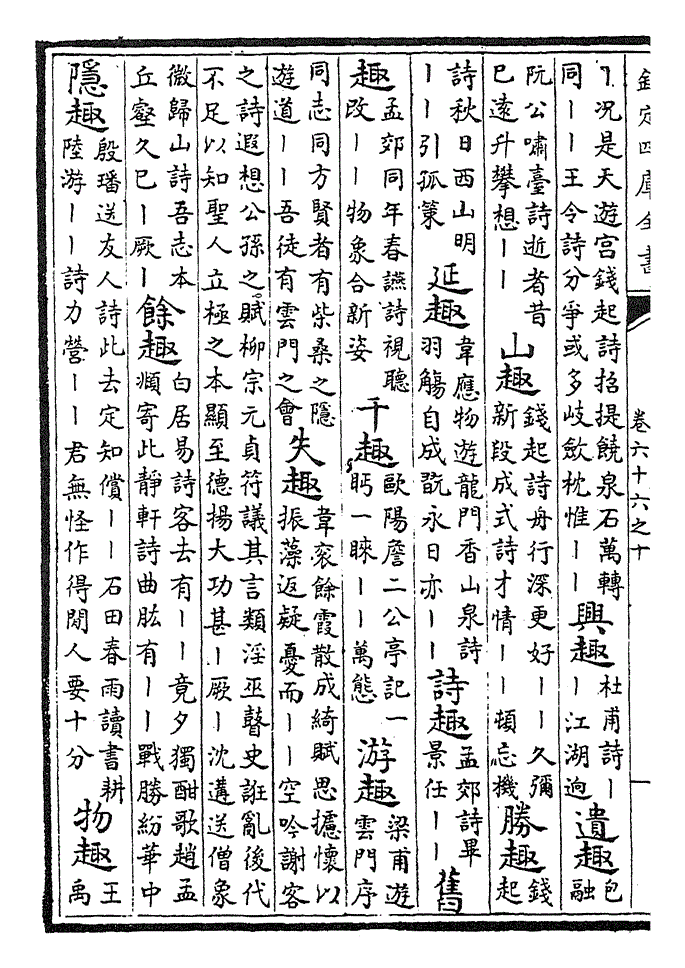 欽定四庫全書 卷六十六之十 一
丨况是天遊宫錢起詩招提饒泉石萬轉
同丨丨王令詩分爭或多岐歛枕惟丨丨
興趣
杜甫詩丨
丨江湖迥
遺趣
包
融
阮公嘯臺詩逝者昔
巳遠升攀想丨丨
山趣
錢起詩舟行深更好丨丨久彌
新段成式詩才情丨丨頓忘機
勝趣
錢
起
詩秋日西山明
丨丨引孤策
延趣
韋應物遊龍門香山泉詩
羽觴自成翫永日亦丨丨
詩趣
孟郊詩畢
景任丨丨
舊
趣
孟郊同年春讌詩視聽
改丨丨物象合新姿
千趣
歐陽詹二公亭記一
眄一睞丨丨萬態
游趣
梁甫遊
雲門序
同志同方賢者有柴桑之隱
遊道丨丨吾徒有雲門之會
失趣
韋衮餘霞散成綺賦思攄懷以
振藻返疑憂而丨丨空吟謝客
之詩遐想公孫之賦柳宗元貞符議其言類淫巫瞽史誑亂後代
不足以知聖人立極之本顯至德揚大功甚丨厥丨沈遘送僧象
微歸山詩吾志本
丘壑久已丨厥丨
餘趣
白居易詩客去有丨丨竟夕獨酣歌趙孟
頫寄此靜軒詩曲肱有丨丨戰勝紛華中
隱趣
殷璠送友人詩此去定知償丨丨石田春雨讀書耕
陸游丨丨詩力營丨丨君無怪作得閒人要十分
物趣
王
禹